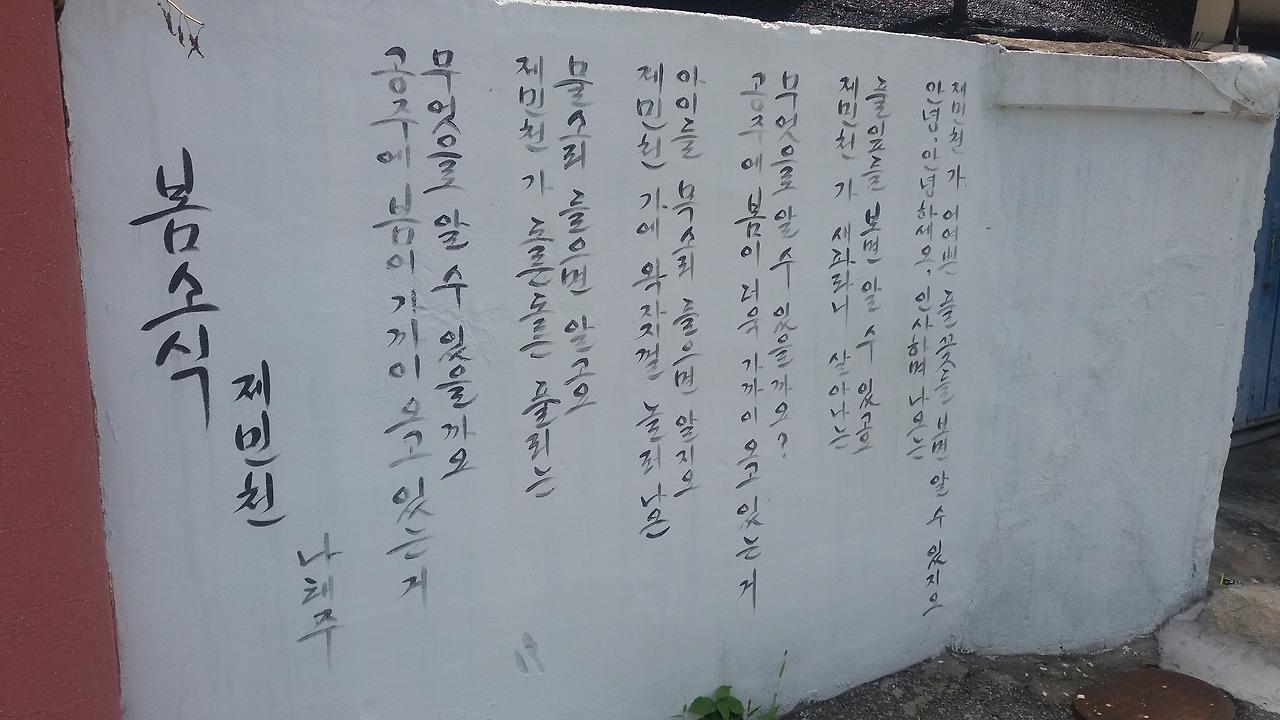 봄소식
제민천
나태주
공주에 봄이 가까이 오고 있는 거
무엇으로 알 수 있을까요
제민천 가 도른도른 풀리는
물소리 들으면 알고요
제민천 가에 왁자껄 놀러 나온
아이들 목소리 들으면 알지요
공주에 봄이 더욱 가까이 오고 있는 거
무엇으로 알 수 있을까요?
제민천 가 새파라니 살아나는
풀잎들을 보면 알 수 있고요
안녕, 안녕하세요, 인사하며 나오는
제민천 가 어여쁜 풀꽃들 보면 알 수 있지요